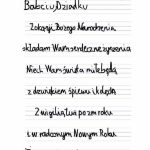 Babciu, Dziadku
Z okazji Bożego Narodzenia
składam Wam serdeczne życzenia
Niech Wam święta miło będą
z dźwiękiem śpiewu i kolędą
Z wigilią tuż po zmroku
i w radosnym Nowym Roku